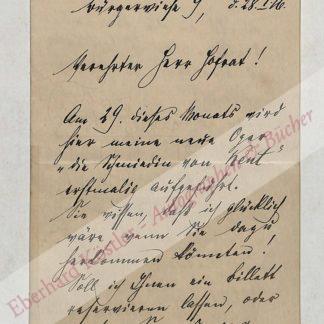 Bürgerwiese 9, d. 28. I 16.
Verehrter Herr Hofrat!
Am 29. dieses Monats wird
hier meine neue Oper
„die Schmiedin von Kent“
erstmalig aufgeführt.
Sie wissen, daß ich glücklich
wäre wenn Sie dazu
herkommen könnten!
Soll ich Ihnen ein Billett
reservieren lassen, oder
Eberhard Köstler - Autographen & Bücher